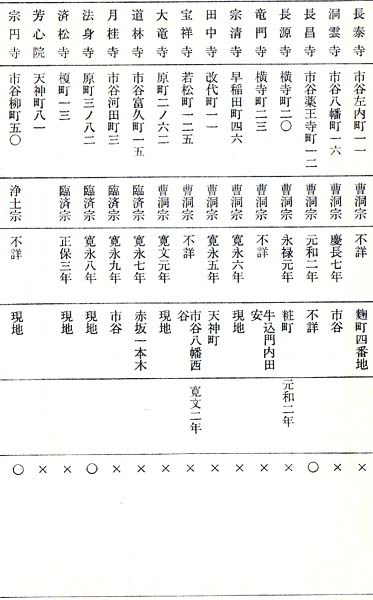 長泰寺 市谷左内町二一 曹洞宗 不詳 麹町四番地 ×
洞雲寺 市谷八幡町一六 曹洞宗 慶長七年 市谷 ×
長昌寺 市谷薬王寺町一二 曹洞宗 元和二年 不詳 ○
長源寺 横寺町二〇 曹洞宗 永禄元年 糀町 元和二年 ×
竜門寺 横寺町二三 曹洞宗 不詳 牛込門内田安 ×
宗清寺 早稲田町四六 曹洞宗 寛永六年 現地 ×
田中寺 改代町一一 曹洞宗 寛永五年 天神町 ×
宝祥寺 若松町一二五 曹洞宗 不詳 市谷八幡西谷 寛文二年 ×
大竜寺 原町二ノ六二 曹洞宗 寛文元年 現地 ×
道林寺 市谷富久町一五 臨済宗 寛永七年 赤坂一本木 ×
月桂寺 市谷河田町三 臨済宗 寛永九年 市谷 ×
法身寺 原町三ノ八二 臨済宗 寛永八年 現地 ○
済松寺 榎町一三 臨済宗 正保三年 現地 ×
芳心院 天神町八一 ×
宗円寺 市谷柳町五〇 浄土宗 不詳 現地 ○